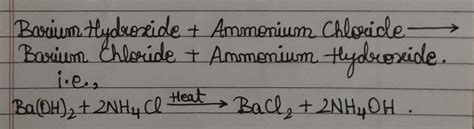 Barium Hydroxide + Ammonium Chloride ⟶
Barium Chloride + Ammonium Hydroxide.
i.e.,
Ba(OH)₂ + 2NH₄Cl —Heat→ BaCl₂ + 2NH₄OH .